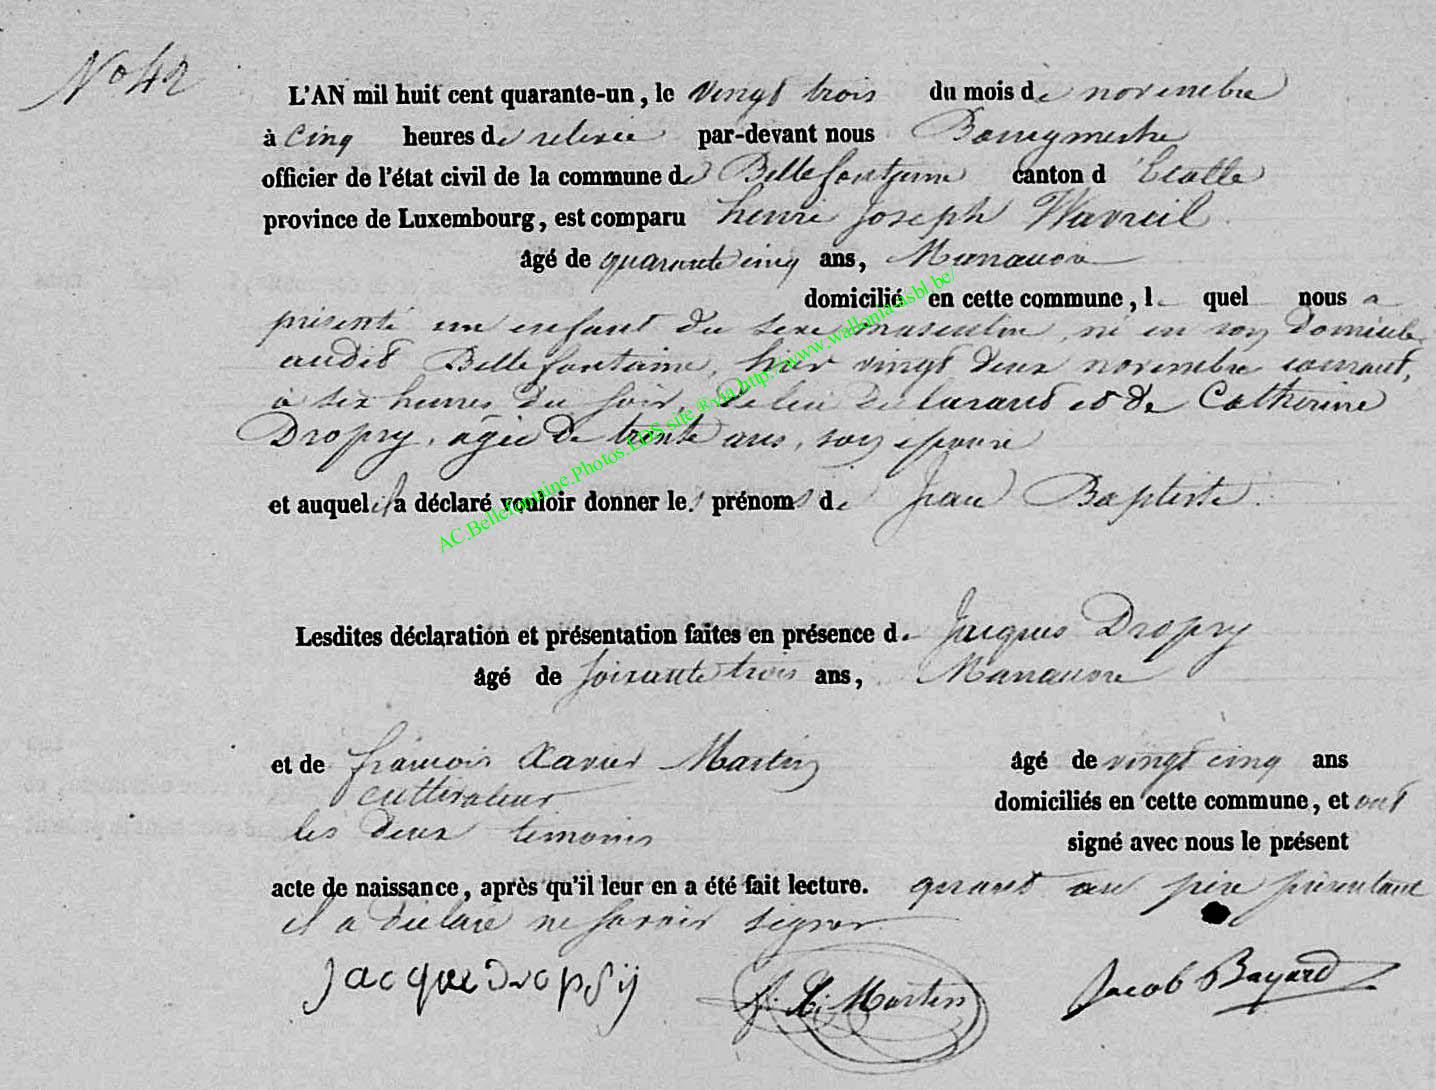 No 42
L'AN mil huit cent quarante-un, le vingt trois du mois de novembre
à cinq heures de relevée par-devant nous Bourgmestre
officier de l'état civil de la commune de Bellefontaine canton d'Etalle
province de Luxembourg, est comparu henri Joseph Wavreil
âgé de quarante cinq ans, Manœuvre
domicilié en cette commune, lequel nous a
présenté un enfant du sexe masculin, né en son domicile
audit Bellefontaine, hier vingt deux novembre courant,
à six heures du soir, de lui déclarant et de Catherine
Dropsy, agée de trente ans, son epouse
et auquel il a déclaré vouloir donner les prénoms de Jean Baptiste.
Lesdites déclaration et présentation faites en présence de Jacques Dropsy
âgé de soixante trois ans, Manœuvre
et de francois Xavier Martin âgé de vingt cinq ans
cultivateur domiciliés en cette commune, et ont
les deux temoins signé avec nous le présent
acte de naissance, après qu'il leur en a été fait lecture. quant au père présentant
il a déclaré ne savoir signer.
Jacque Dropsy f. X. Martin Jacob Bayard
AC.Bellefontaine.Photos.EDS site R via http://www.wallonia-asbl.be/